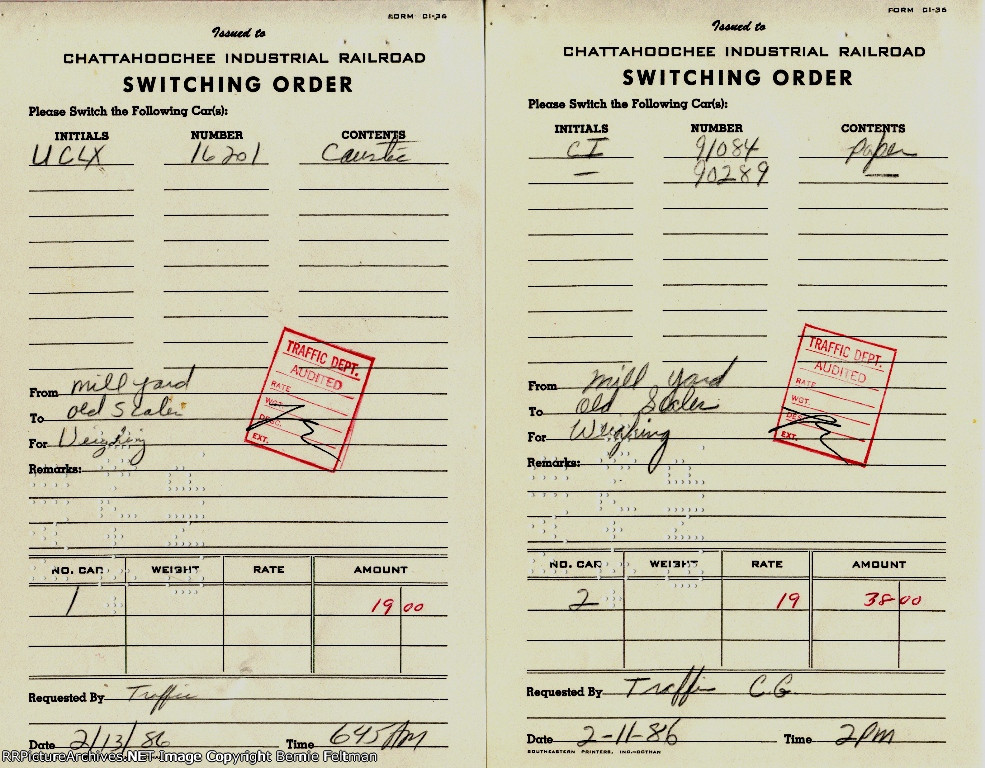 FORM CI-36
Issued to
CHATTAHOOCHEE INDUSTRIAL RAILROAD
SWITCHING ORDER
Please Switch the Following Car(s):
INITIALS NUMBER CONTENTS
UCLX 16201 Caustic
TRAFFIC DEPT.
AUDITED
RATE
WGT.
DESC.
EXT.
From mill yard
To old Scales
For Weighing
Remarks:
NO. CAR WEIGHT RATE AMOUNT
1 19 00
Requested By Traffic
Date 2/13/86 Time 645 AM
FORM CI-36
Issued to
CHATTAHOOCHEE INDUSTRIAL RAILROAD
SWITCHING ORDER
Please Switch the Following Car(s):
INITIALS NUMBER CONTENTS
CI 91084 paper
— 90289 —
TRAFFIC DEPT.
AUDITED
RATE
WGT.
DESC.
EXT.
From Mill yard
To Old Scales
For Weighing
Remarks:
NO. CAR WEIGHT RATE AMOUNT
2 19 38 00
Requested By Traffic CG
Date 2-11-86 Time 2PM
SOUTHEASTERN PRINTERS, INC.-DOTHAN
RRPictureArchives.NET Image Copyright Bernie Feltman